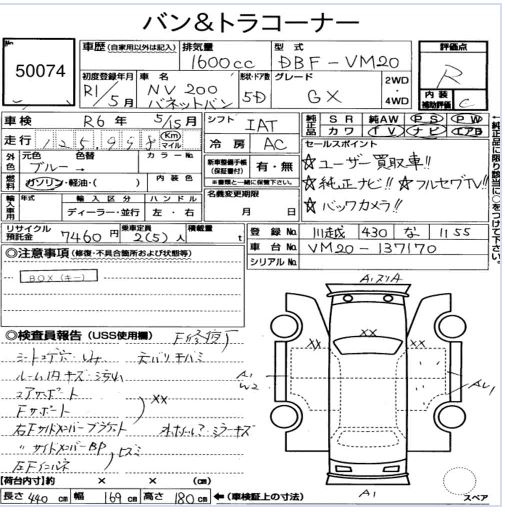 バン&トラコーナー
No
50074
車歴 (自家用以外は記入)
排気量 1600cc
型式 DBF-VM20
評価点 R
内装補助評価 C
初度登録年月 R1/5月
車名 NV200 バネットバン
形状・ドア数 5D
グレード GX
2WD・4WD
車検 R6年 5/15月
シフト IAT
走行 125998 Km マイル
冷房 AC
純正品 SR 純AW PS PW
カワ TV ナビ エアB
外色 元色 ブルー→ 色替 カラーNo
内装色
燃料 ガソリン・軽油・( )
新車整備手帳(保証書付) 有・無
※書類と一緒に保管して下さい。
セールスポイント
☆ユーザー買取車!!
☆純正ナビ!! ☆フルセグTV!!
☆バックカメラ!!
←純正品に限り該当に○をつけて下さい。
輸入車用 年式 輸入区分 ハンドル
ディーラー・並行 左・右
名義変更期限
月 日
リサイクル預託金 7460円
乗車定員 2(5)人
積載量 t
登録No. 川越 430 な 1155
車台No. VM20-137170
シリアルNo.
◎注意事項 (修復・不具合箇所および状態等)
BOX(キー)
◎検査員報告 (USS使用欄)
ルーム内キズ
コアサポート
Fサポート
XX
右Fサイドメンバーブラケット
〃サイドメンバーBP
左Fインパネ
ミラーキズ
XX
XX
XX
A1
W2
AU1
A1
【荷台内寸】約 × × (cm)
長さ 440cm 幅 169cm 高さ 180cm ←(車検証上の寸法)
スペア